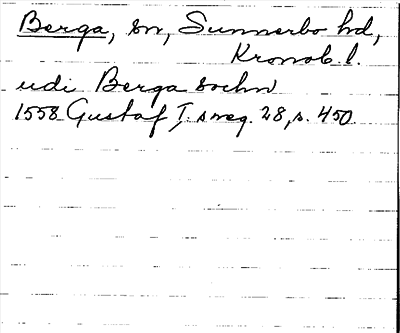 Berga, sn, Sunnerbo hd,
Kronob. l.
udi Berga sochn
1558 Gustaf I:s reg. 28, s. 450